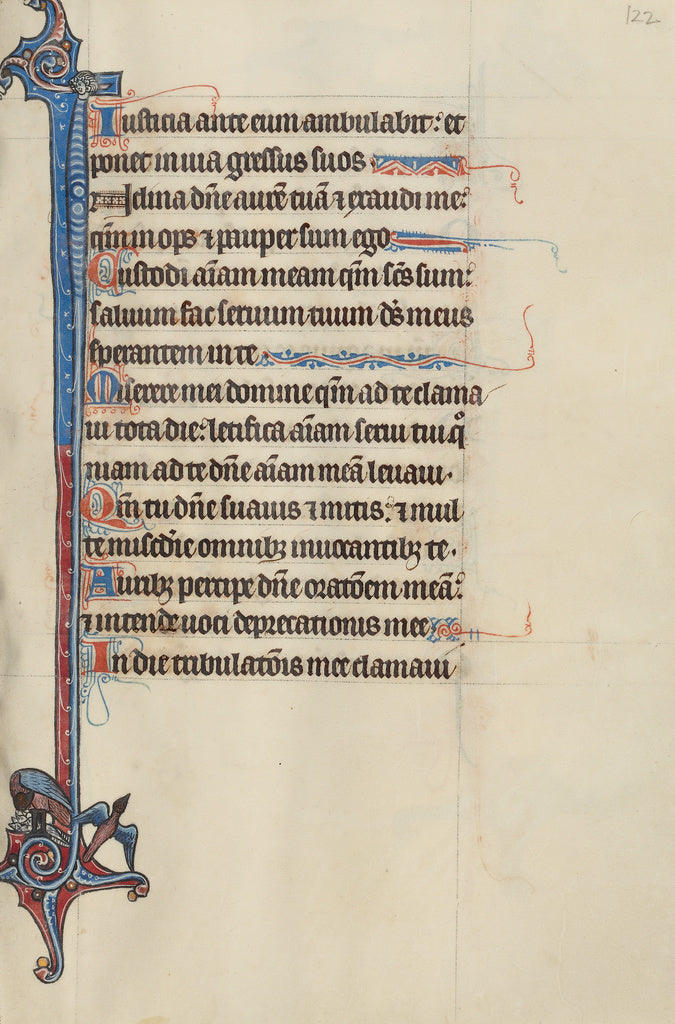 122
Iusticia ante eum ambulabit: et
ponet in uia gressus suos
Inclina dñe aurē tuā ⁊ exaudi me:
qm̄ inops ⁊ pauper sum ego
Custodi aīam meam qm̄ sc̄s sum:
saluum fac seruum tuum ds̄ meus
sperantem in te
Miserere mei domine qm̄ ad te clama
ui tota die: letifica aīam serui tui qͦ
niam ad te dñe aīam meā leuaui.
Qm̄ tu dñe suauis ⁊ mitis: ⁊ mul
te misc̄die omnibꝫ inuocantibꝫ te.
Auribꝫ percipe dñe oratōem meā:
⁊ intende uoci deprecationis mee
In die tribulatōis mee clamaui